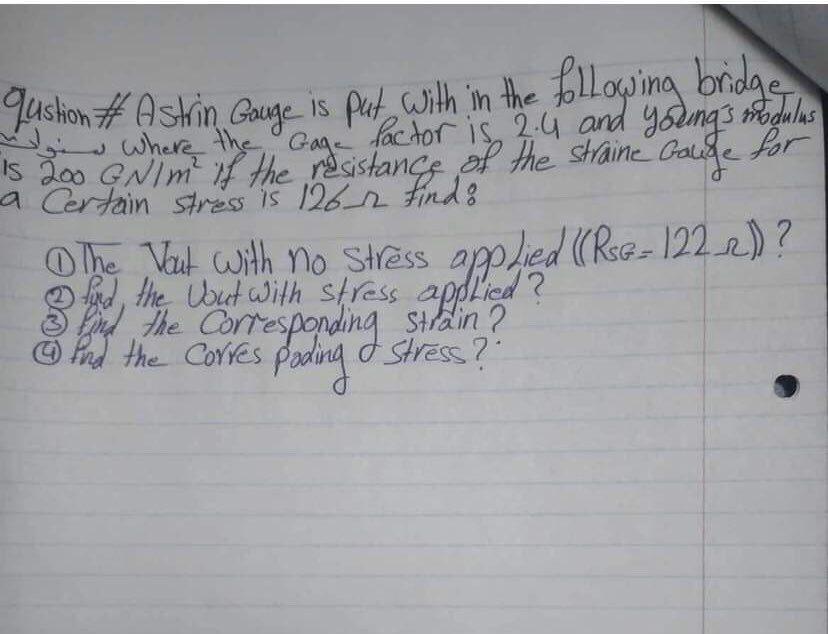 qustion # A strin Gauge is put with in the following bridge
where the Gage factor is 2.4 and young's modulus
is 200 GN/m² if the resistance of the straine Gauge for
a Certain stress is 126 Ω find:
① The Vout with no stress applied ((RSG = 122 Ω)) ?
② find the Vout with stress applied ?
③ find the Corresponding strain ?
④ fnd the Corres pading stress ?